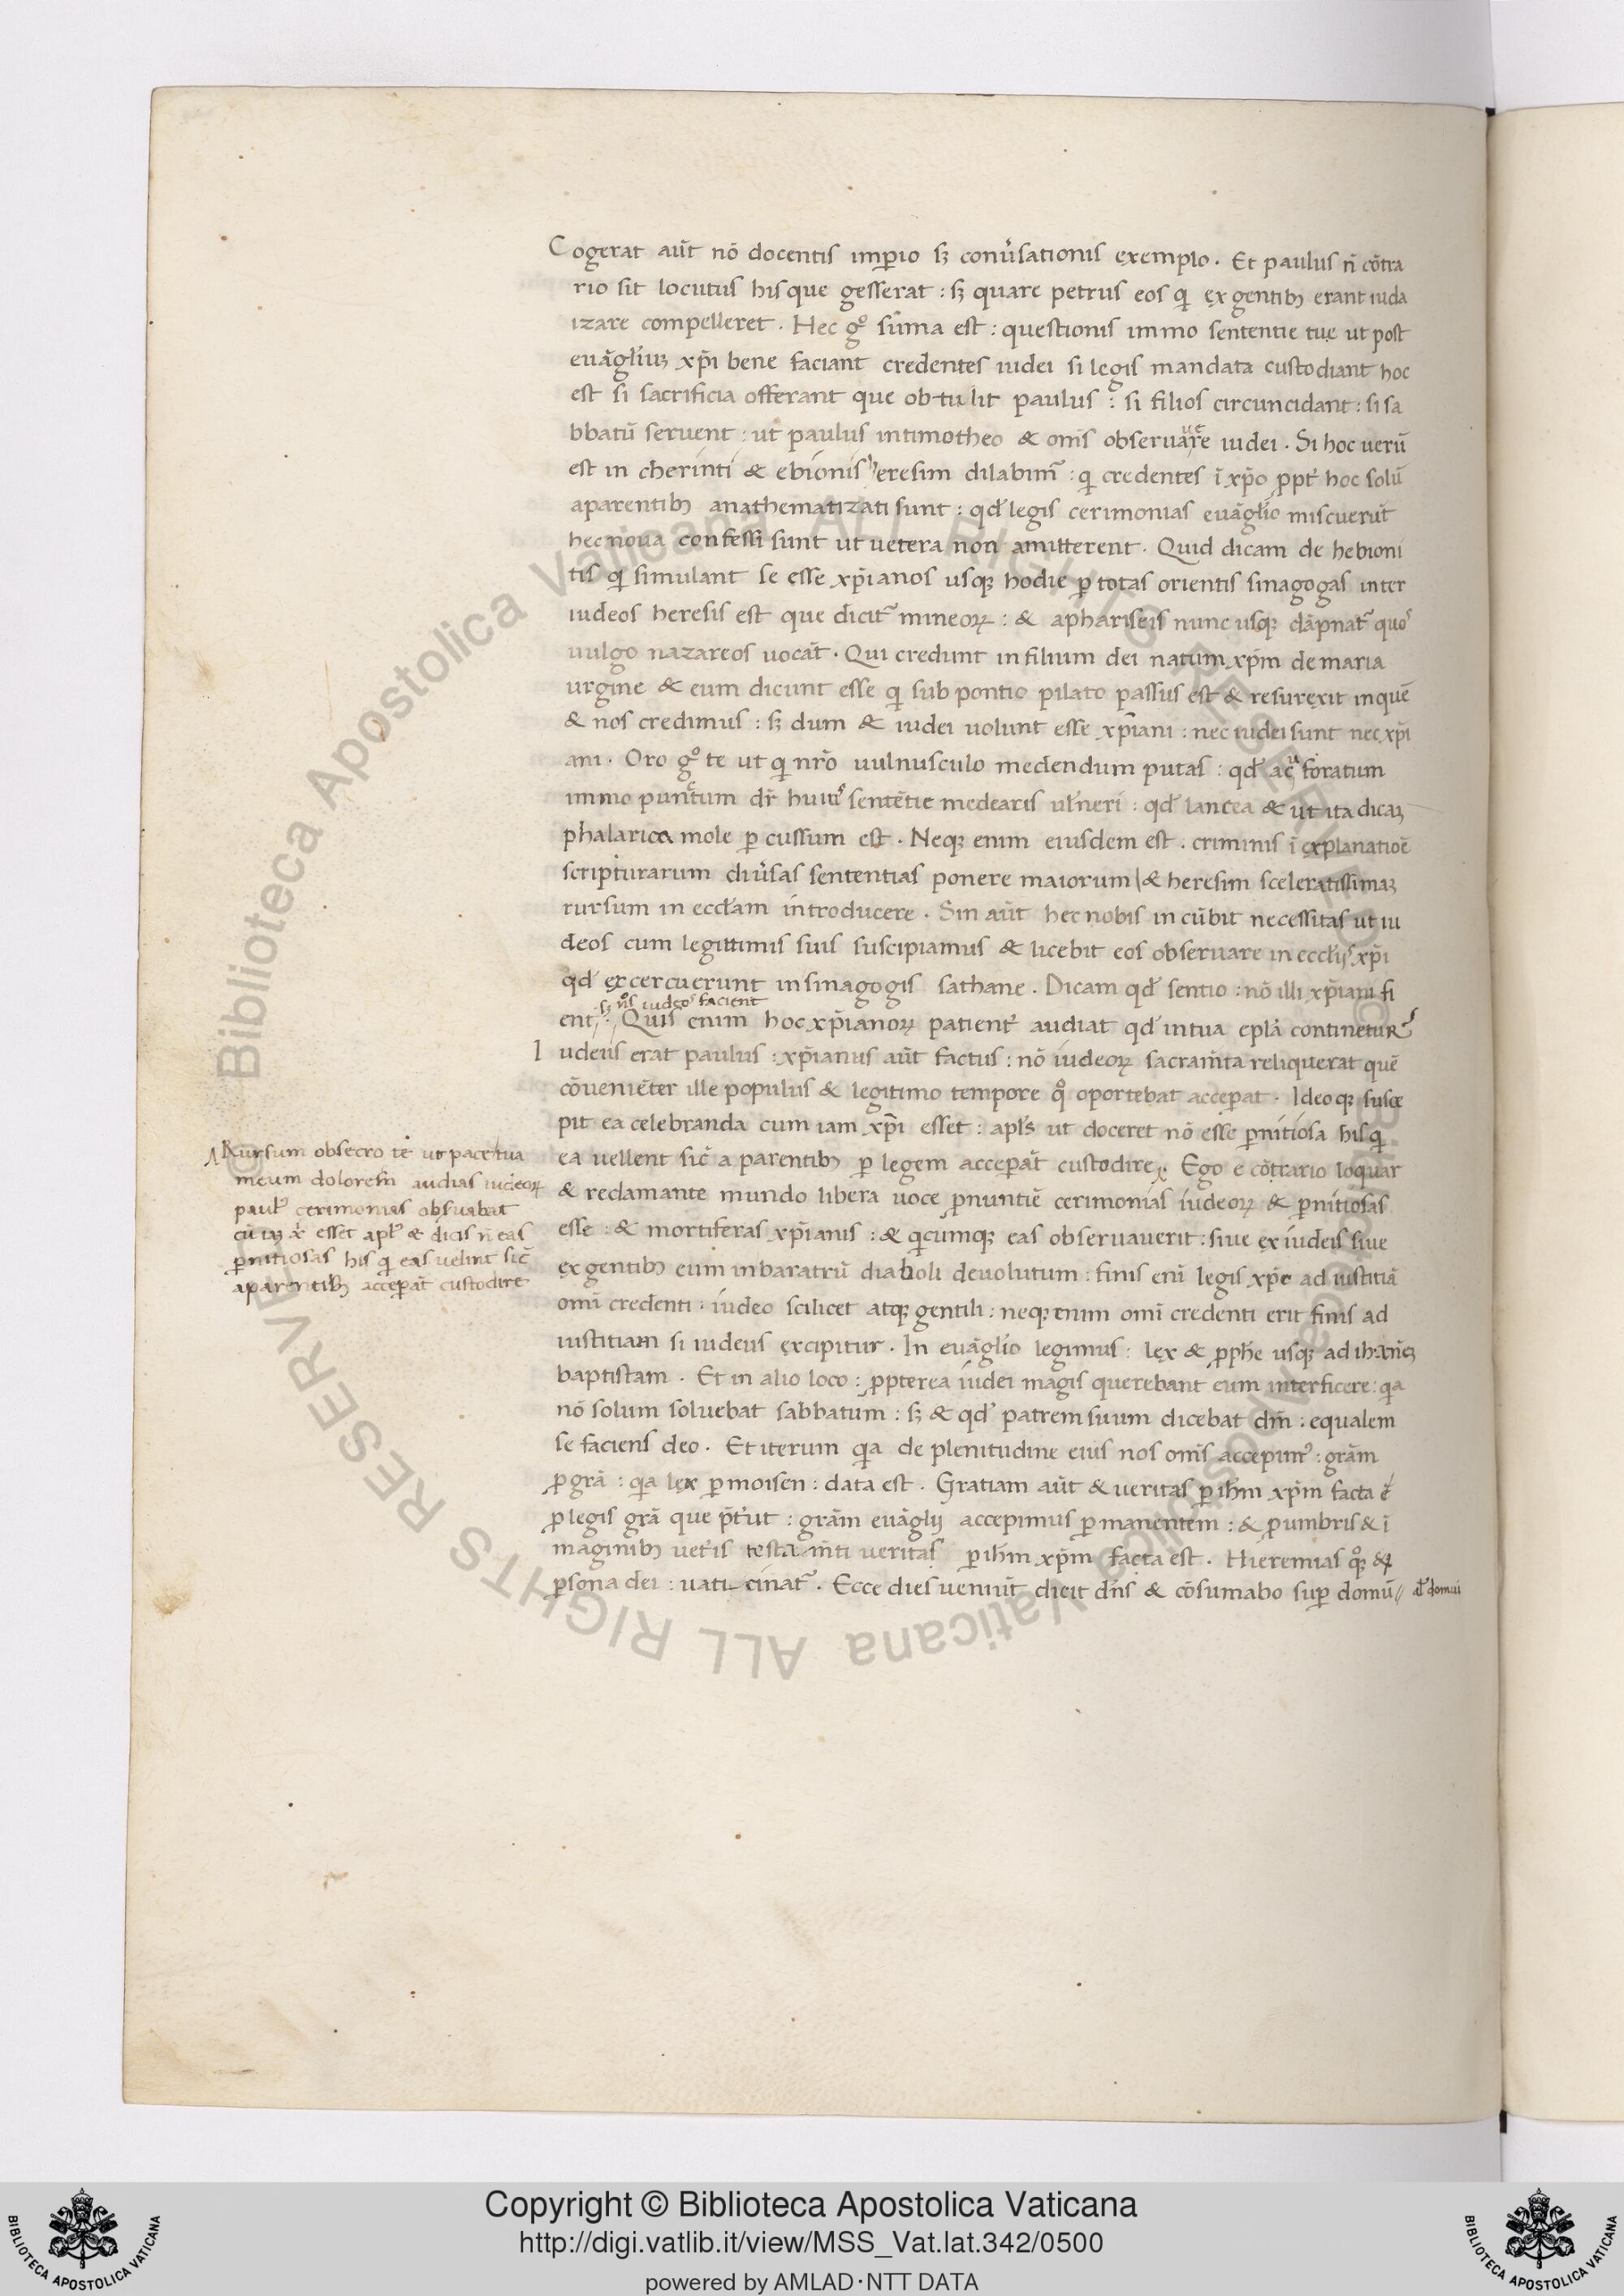 Cogerat aūt nō docentis imꝑio sꝫ conuersationis exemplo. Et paulus n̄ cōtra
rio sit locutus hisque gesserat: sꝫ quare petrus eos qͥ ex gentibꝫ erant iuda
izare compelleret. Hec gͦ sūma est: questionis immo sententie tue ut post
euāgłiuꝫ xp̄i bene faciant credentes iudei si legis mandata custodiant hoc
est si sacrificia offerant que obtulit paulus: si filios circuncidant: si sa
bbatū seruent: ut paulus intimotheo & om̄s obseruare iudei. Si hoc uerū
est in cherinti & ebionis heresim dilabimr̄: qͥ credentes ī xp̄o ꝓpt̄ hoc solū
aparentibꝫ anathematizati sunt: qđ legis cerimonias euāgłio miscuerūt
hec noua confessi sunt ut uetera non amitterent. Quid dicam de hebioni
tis qͥ simulant se esse xp̄ianos usqꝫ hodie ꝑ totas orientis sinagogas inter
iudeos heresis est que dicit̄ mineoꝝ: & aphariseis nunc usqꝫ dāpnat̄ quos
uulgo nazareos uocāt. Qui credunt in filium dei natum xp̄m de maria
urgine & eum dicunt esse qͥ sub pontio pilato passus est & resurexit inquē
& nos credimus: sꝫ dum & iudei uolunt esse xp̄iani: nec iudei sunt nec xp̄i
ani. Oro gͦ te ut qͥ nr̄o uulnusculo medendum putas: qđ acu foratum
immo punctum dr̄ huius sentētie medearis uln̄eri: qđ lancea & ut ita dicaꝫ
phalarica mole ꝑcussum est. Neqꝫ enim eiusdem est. criminis ī explanatiōe
scripturarum diuersas sententias ponere maiorum & heresim sceleratissimaꝫ
rursum in eccłam introducere. Sin aūt hec nobis in cūbit necessitas ut iu
deos cum legittimis suis suscipiamus & licebit eos obseruare in eccłijs xp̄i
qđ excercuerunt insinagogis sathane. Dicam qđ sentio: nō illi xp̄iani fi
sꝫ nos iudeos facient
ent. Quis enim hoc xp̄ianoꝝ patient̄ audiat qđ intua epłā continetur
Iudeus erat paulus: xp̄ianus aūt factus: nō iudeoꝝ sacram̄ta reliquerat quē
cōueniēter ille populus & legitimo tempore qͦ oportebat acceperat. Ideoqꝫ susce
pit ea celebranda cum iam xp̄i esset: apłs ut doceret nō esse ꝑnitiosa his qͥ
ea uellent sic̄ a parentibꝫ ꝑ legem acceperāt custodire. Ego e cōtrario loquar
& reclamante mundo libera uoce ꝓnuntiē cerimonias iudeoꝝ & ꝑnitiosas
esse: & mortiferas xp̄ianis: & qͥcumqꝫ eas obseruauerit: siue ex iudeis siue
ex gentibꝫ eum inbaratrū diaboli deuolutum: finis enī legis xp̄c ad iustitiā
omī credenti: iudeo scilicet atqꝫ gentili: neqꝫ enim omī credenti erit finis ad
iustitiam si iudeus excipitur. In euāglio legimus: lex & ꝓph̄e usqꝫ ad ihānēꝫ
baptistam. Et in alio loco: ꝓpterea iudei magis querebant eum interficere: qͥa
nō solum soluebat sabbatum: sꝫ & qđ patrem suum dicebat dm̄: equalem
se faciens deo. Et iterum qͥa de plenitudine eius nos om̄s accepimꝰ: grām
ꝓ grā: qͥa lex ꝑ moisen: data est. Gratiam aūt & ueritas ꝑ ih̄m xp̄m facta ē
ꝓ legis grā que p̄t̄iit: grām euāglij accepimus ꝑmanentem: & ꝓ umbris & ī
maginibꝫ uet̄is testam̄ti ueritas ꝑ ih̄m xp̄m facta est. Hieremias qͦqꝫ ex
ꝑsona dei: uaticinat̄. Ecce dies ueniūt dicit dn̄s & cōsumabo suꝑ domū
aƚ domui
Rursum obsecro te ut pace tua
meum dolorem audias iudeoꝝ
paulꝰ cerimonias obseruabat
cū iaꝫ xp̄i esset apłs & dicis n̄ eas
ꝑnitiosas his qͥ eas uelint sic̄
aparentibꝫ acceperāt custodire
Copyright © Biblioteca Apostolica Vaticana
http://digi.vatlib.it/view/MSS_Vat.lat.342/0500
powered by AMLAD·NTT DATA
BIBLIOTECA APOSTOLICA VATICANA
BIBLIOTECA APOSTOLICA VATICANA
© Biblioteca Apostolica Vaticana ALL RIGHTS RESERVED
© Biblioteca Apostolica Vaticana ALL RIGHTS RESERVED